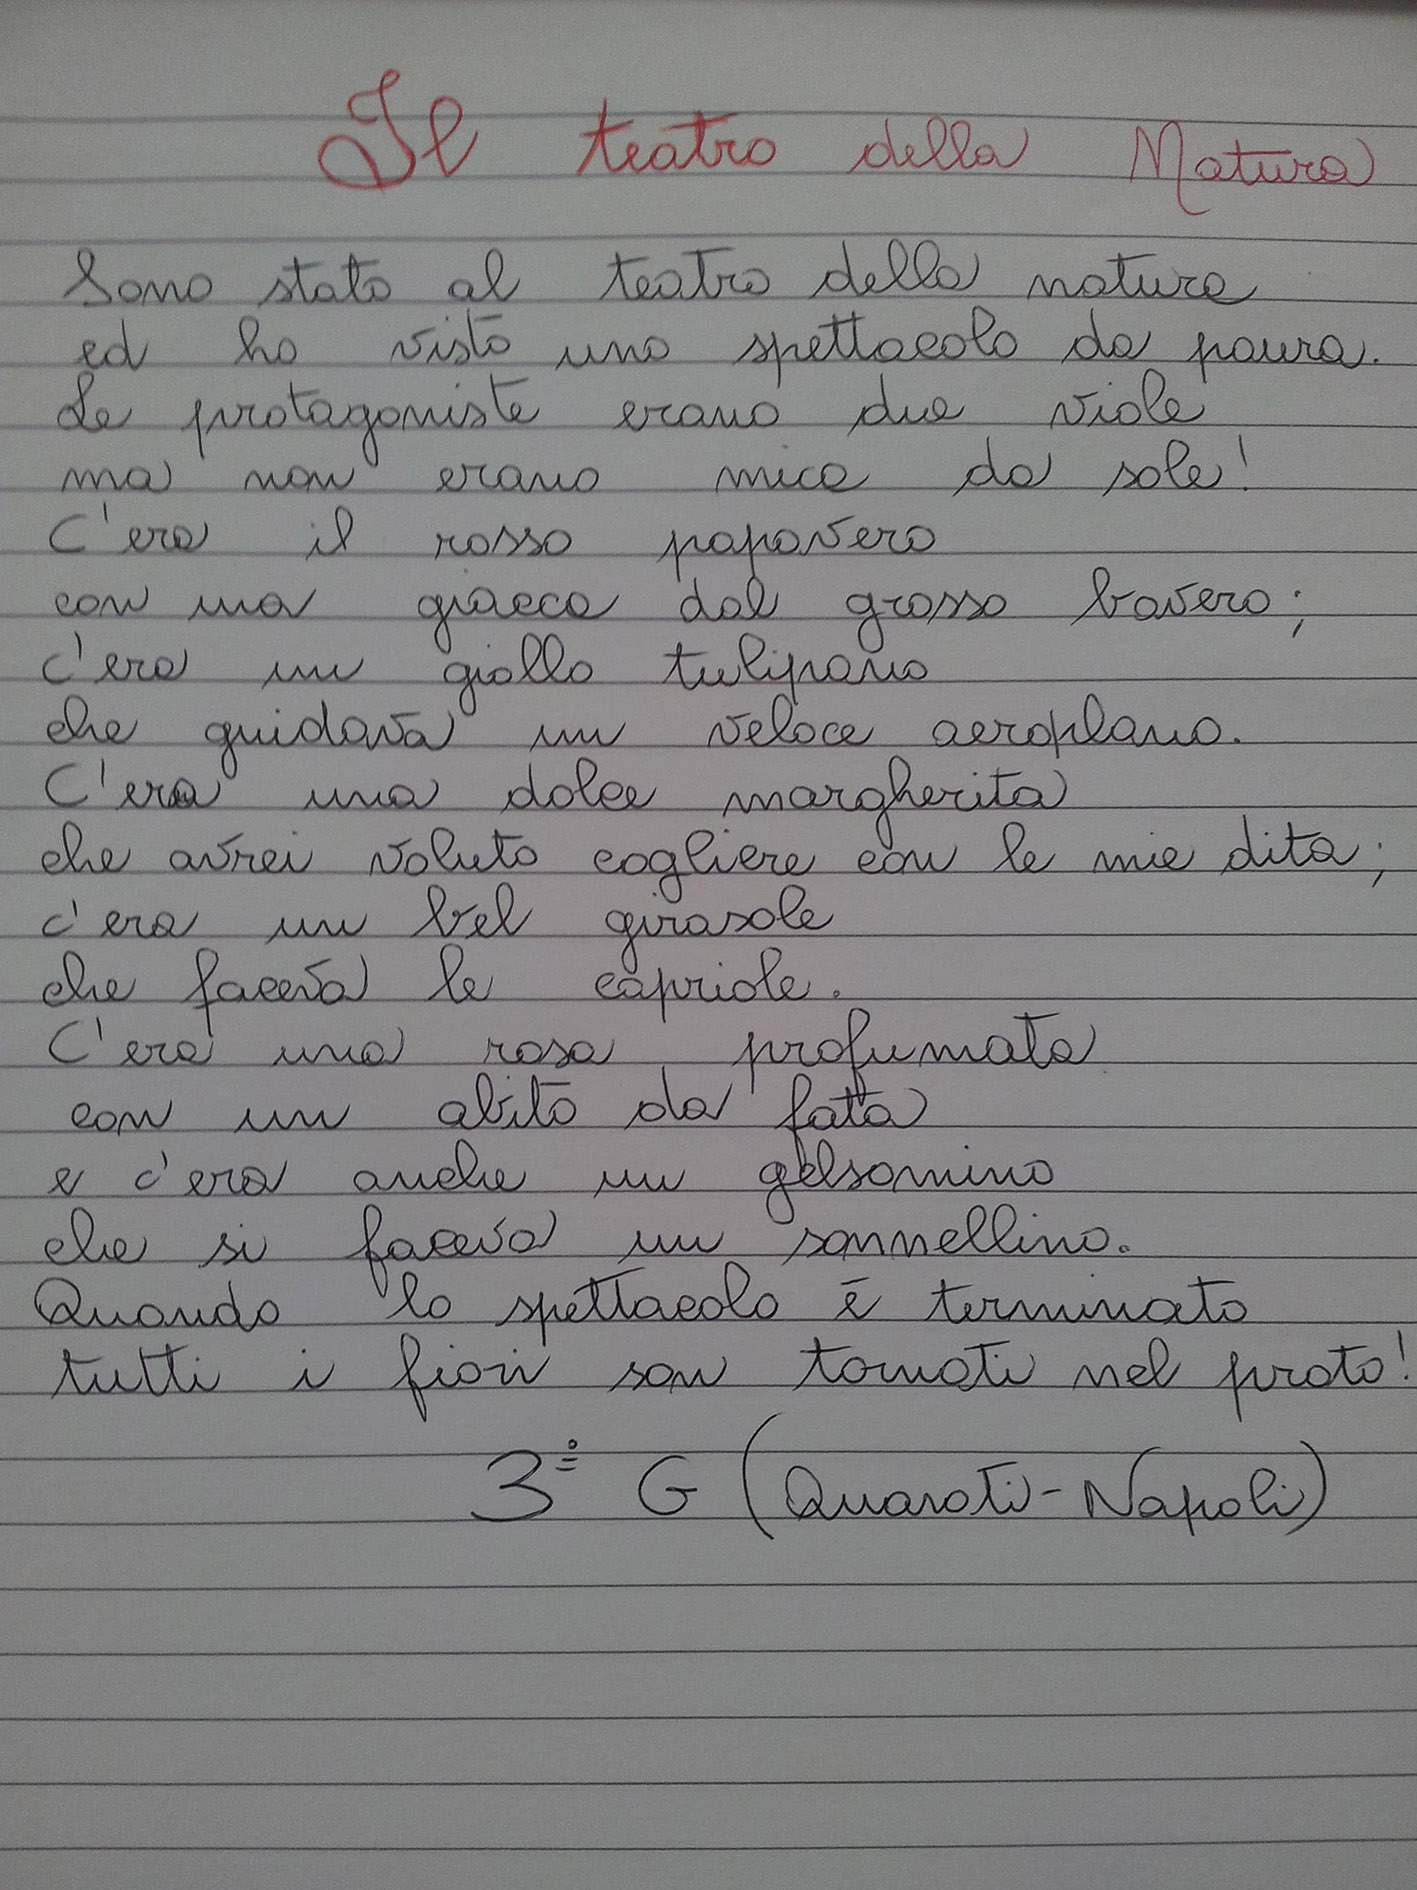 Il teatro della Natura
Sono stato al teatro della natura
ed ho visto uno spettacolo da paura.
Le protagoniste erano due viole
ma non erano mica da sole!
C'era il rosso papavero
con una giacca dal grosso bavero;
c'era un giallo tulipano
che guidava un veloce aeroplano.
C'era una dolce margherita
che avrei voluto cogliere con le mie dita;
c'era un bel girasole
che faceva le capriole.
C'era una rosa profumata
con un abito da fata
e c'era anche un gelsomino
che si faceva un sonnellino.
Quando lo spettacolo è terminato
tutti i fiori son tornati nel prato!
3° G (Quaroti-Napoli)